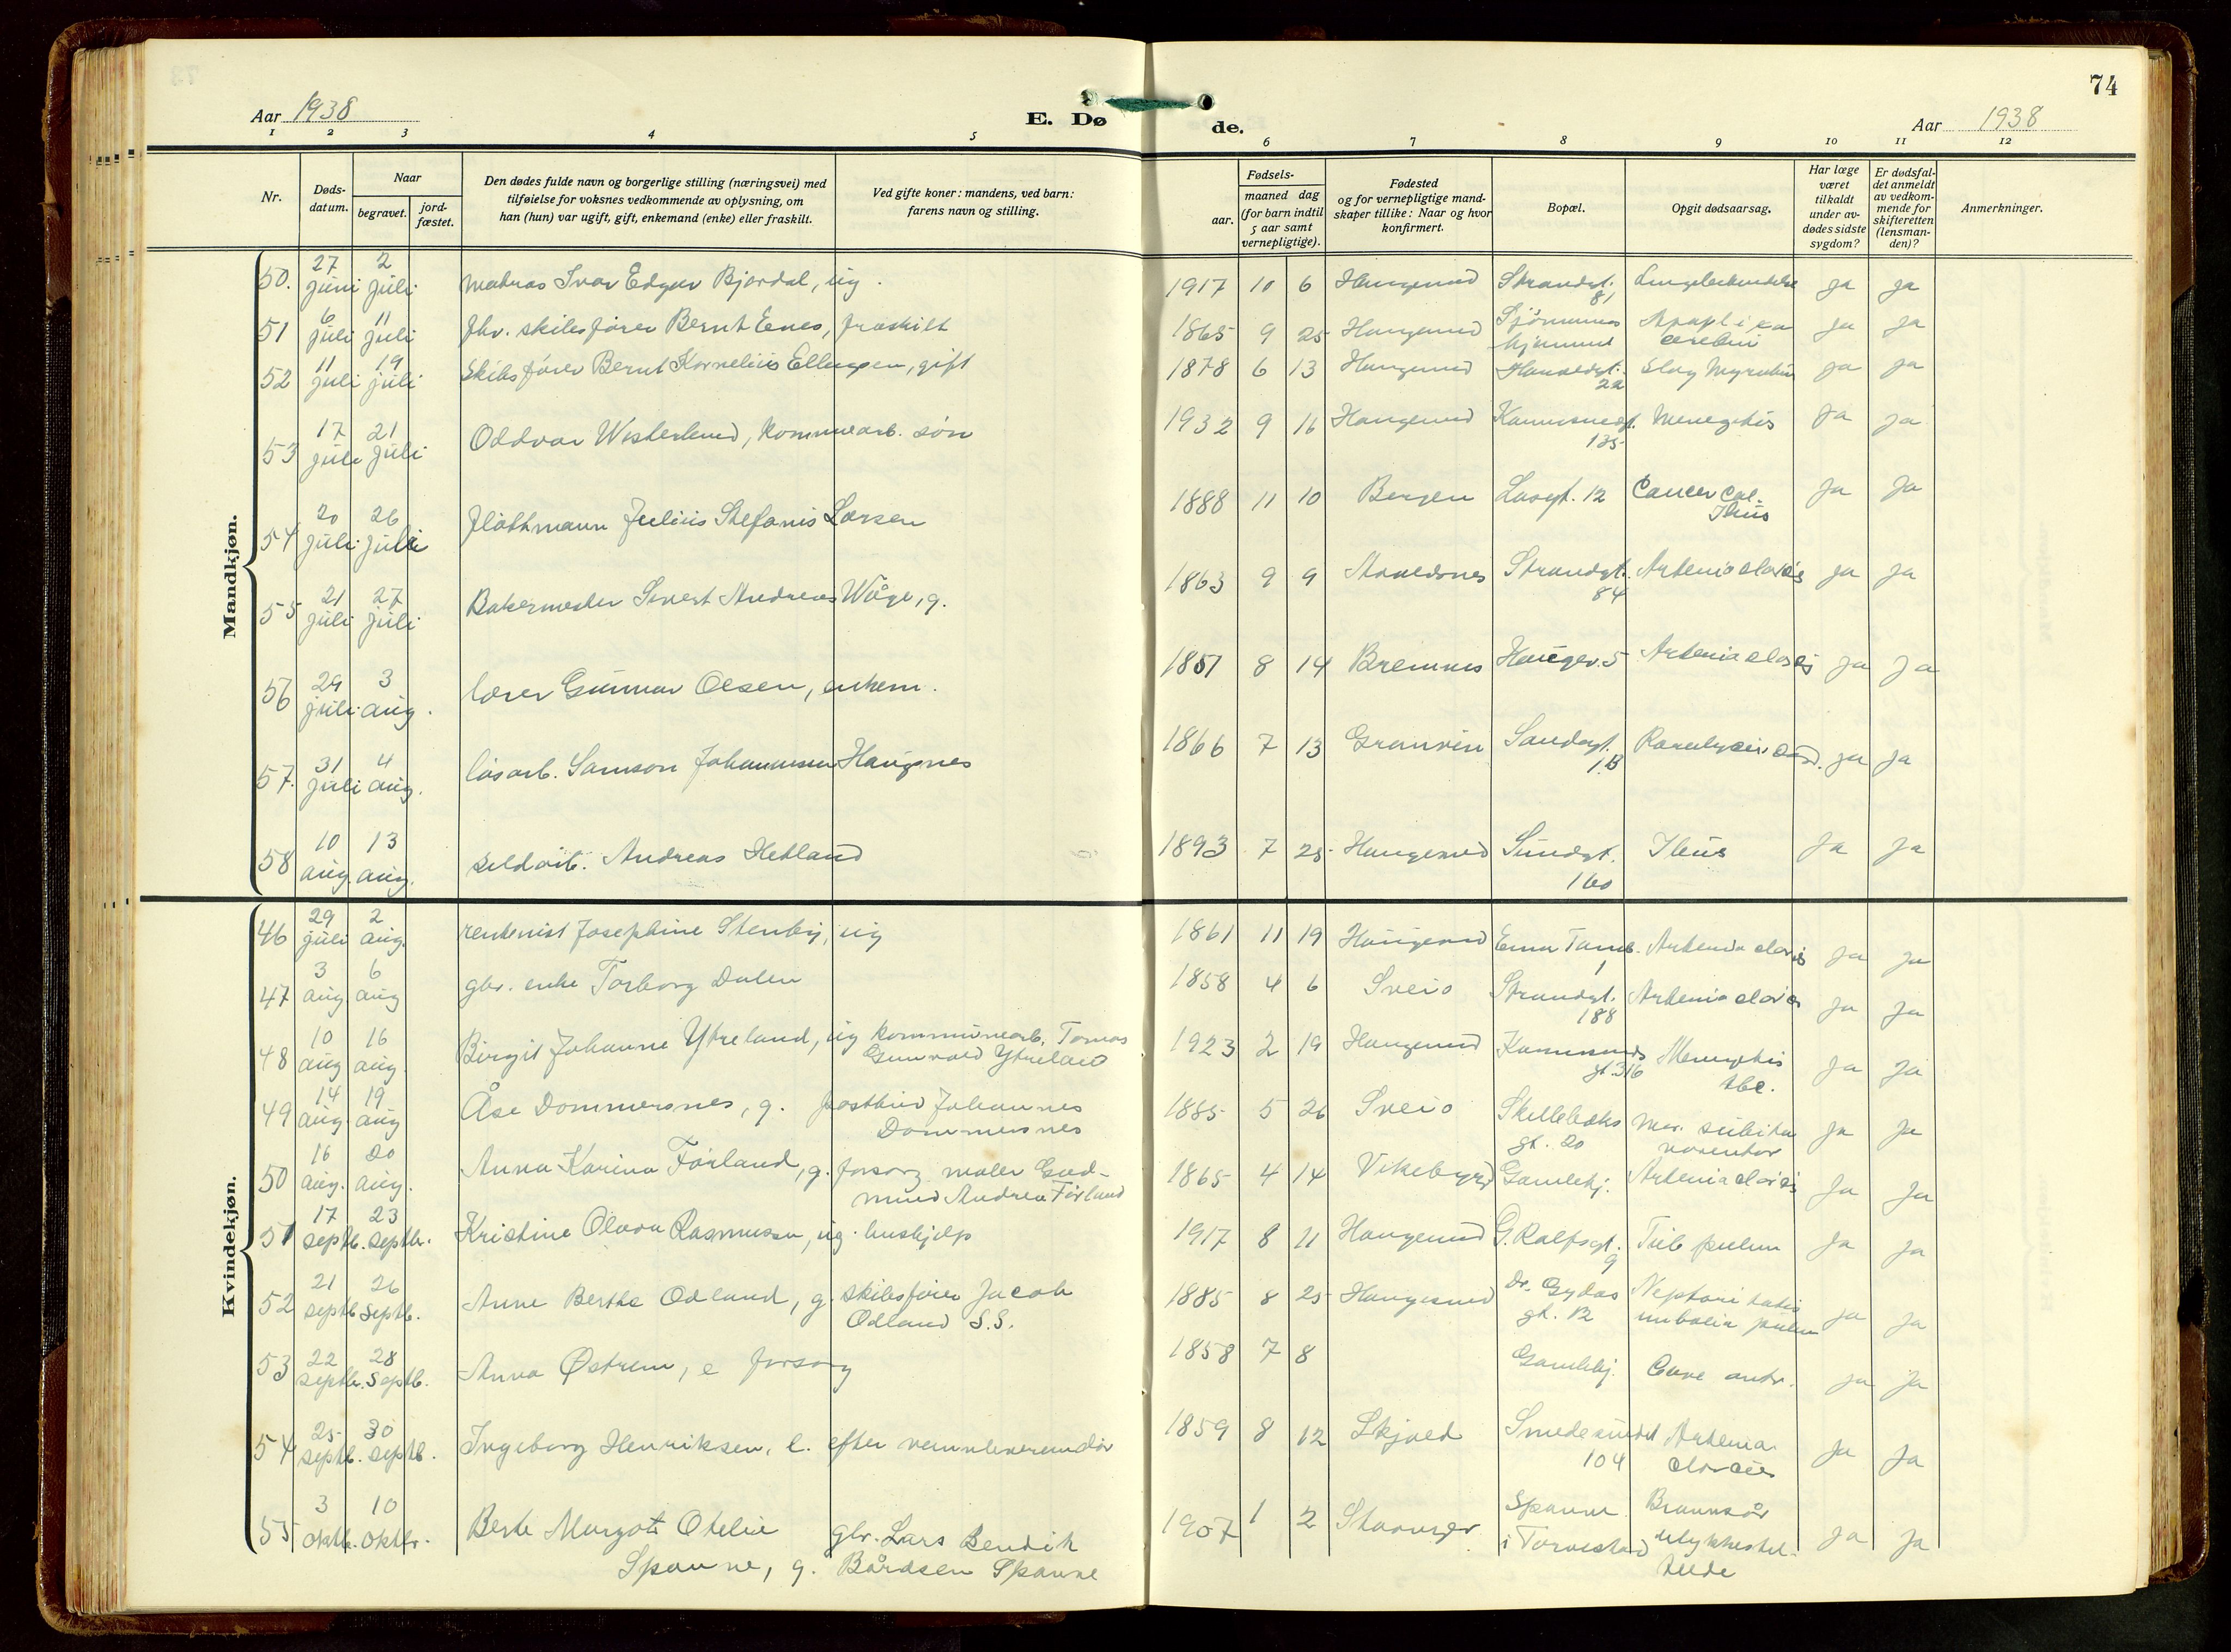 74
Aar 1938
E. Dø
de.
Aar 1938
1 2 3 4 5 6 7 8 9 10 11 12
Nr.
Døds-
datum.
Naar
begravet.
jord-
fæstet.
Den dødes fulde navn og borgerlige stilling (næringsvei) med
tilføielse for voksnes vedkommende av oplysning, om
han (hun) var ugift, gift, enkemand (enke) eller fraskilt.
Ved gifte koner: mandens, ved barn:
farens navn og stilling.
Fødsels-
aar.
maaned dag
(for barn indtil
5 aar samt
vernepligtige).
Fødested
og for vernepligtige mand-
skaper tillike: Naar og hvor
konfirmert.
Bopæl.
Opgit dødsaarsag.
Har læge
været
tilkaldt
under av-
dødes sidste
sygdom?
Er dødsfal-
det anmeldt
av vedkom-
mende for
skifteretten
(lensman-
den)?
Anmerkninger.
Mandkjøn.
50. 27 juni 2 juli matros Ivar Edgar Bjordal, ug. 1917 10 6 Haugesund Strandgt. 81 ja ja
51 6 juli 11 juli fhv. skibsfører Bernt Eenes, fraskilt 1865 9 25 Haugesund Sjømanns hjemmet Apoplexia cerebri ja ja
52 11 juli 19 juli Skibsfører Bernt Kornelius Ellingsen, gift 1878 6 13 Haugesund Haraldsgt. 22 ja ja
53 17 juli 21 juli Oddvar Westerlund, kommunearb. søn 1932 9 16 Haugesund Karmsundgt. 135 Menegitis ja ja
54 20 juli 26 juli Flåthmann Julius Stefanis Larsen 1888 11 10 Bergen 12 Cancer col. Ileus ja ja
55 21 juli 27 juli Bakermester Sivert Andreas Våge, g. 1863 9 9 Avaldsnes Strandgt. 84 ja ja
56 29 juli 3 aug. lærer Gunnar Olsen, enkem. 1851 8 14 Bremnes Haugev. 5 ja ja
57. 31 juli 4 aug. løsarb. Samson Johannessen Haugsnes 1866 7 13 Granvin 1B ja ja
58 10 aug. 13 aug. sildarb. Andreas Hetland 1893 7 25 Haugesund Sundgt. 160 Ileus ja ja
Kvindekjøn.
46 29 juli 2 aug. rentenist Josephine Stenby, ug 1861 11 19 Haugesund 1 ja ja
47 3 aug. 6 aug gbr. enke Torborg Dalen 1858 4 6 Sveio Strandgt. 188 ja ja
48 10 aug 16 aug. Birgit Johanne Ytreland, ug kommunearb. Tomas
Gunvald Ytreland 1923 2 19 Haugesund Karmsunds gt. 316 Menigitis tbc. ja ja
49 14 aug. 19 aug Åse Dommersnes, g. postbud Johannes
Dommersnes 1885 5 26 Sveio Skillebæks gt. 20 Mors subita ja ja
50 16 aug. 20 aug. Anna Karina Førland, g. forsorg maler Gud-
mund Andreas Førland 1865 4 14 Vikebygd Gamlehj. ja ja
51 17 septb. 23 septbr. Kristine Olava Rasmussen, ug. hushjelp 1917 8 11 Haugesund G. Rolfsgt. 9 Tub pulm ja ja
52 21 septb 26 septb. Anne Berthe Odland, g. skibsfører Jacob
Odland S.S. 1885 8 25 Haugesund Dr. Gydas gt. 12 ja ja
53 22 septbr. 28 septb. Anna Østrem, e forsorg 1858 7 8 Gamlehj. ja ja
54 25 septb. 30 septb. Ingeborg Henriksen, e. efter 1859 8 12 Skjold Smedesundet 104 ja ja
55 3 oktb. 10 oktbr. Berte Margot Otelie
Spanne, g. gbr. Lars Bendik
Bårdsen Spanne 1907 1 2 Stavanger Spanne
i Torvestad Brannsår ja ja